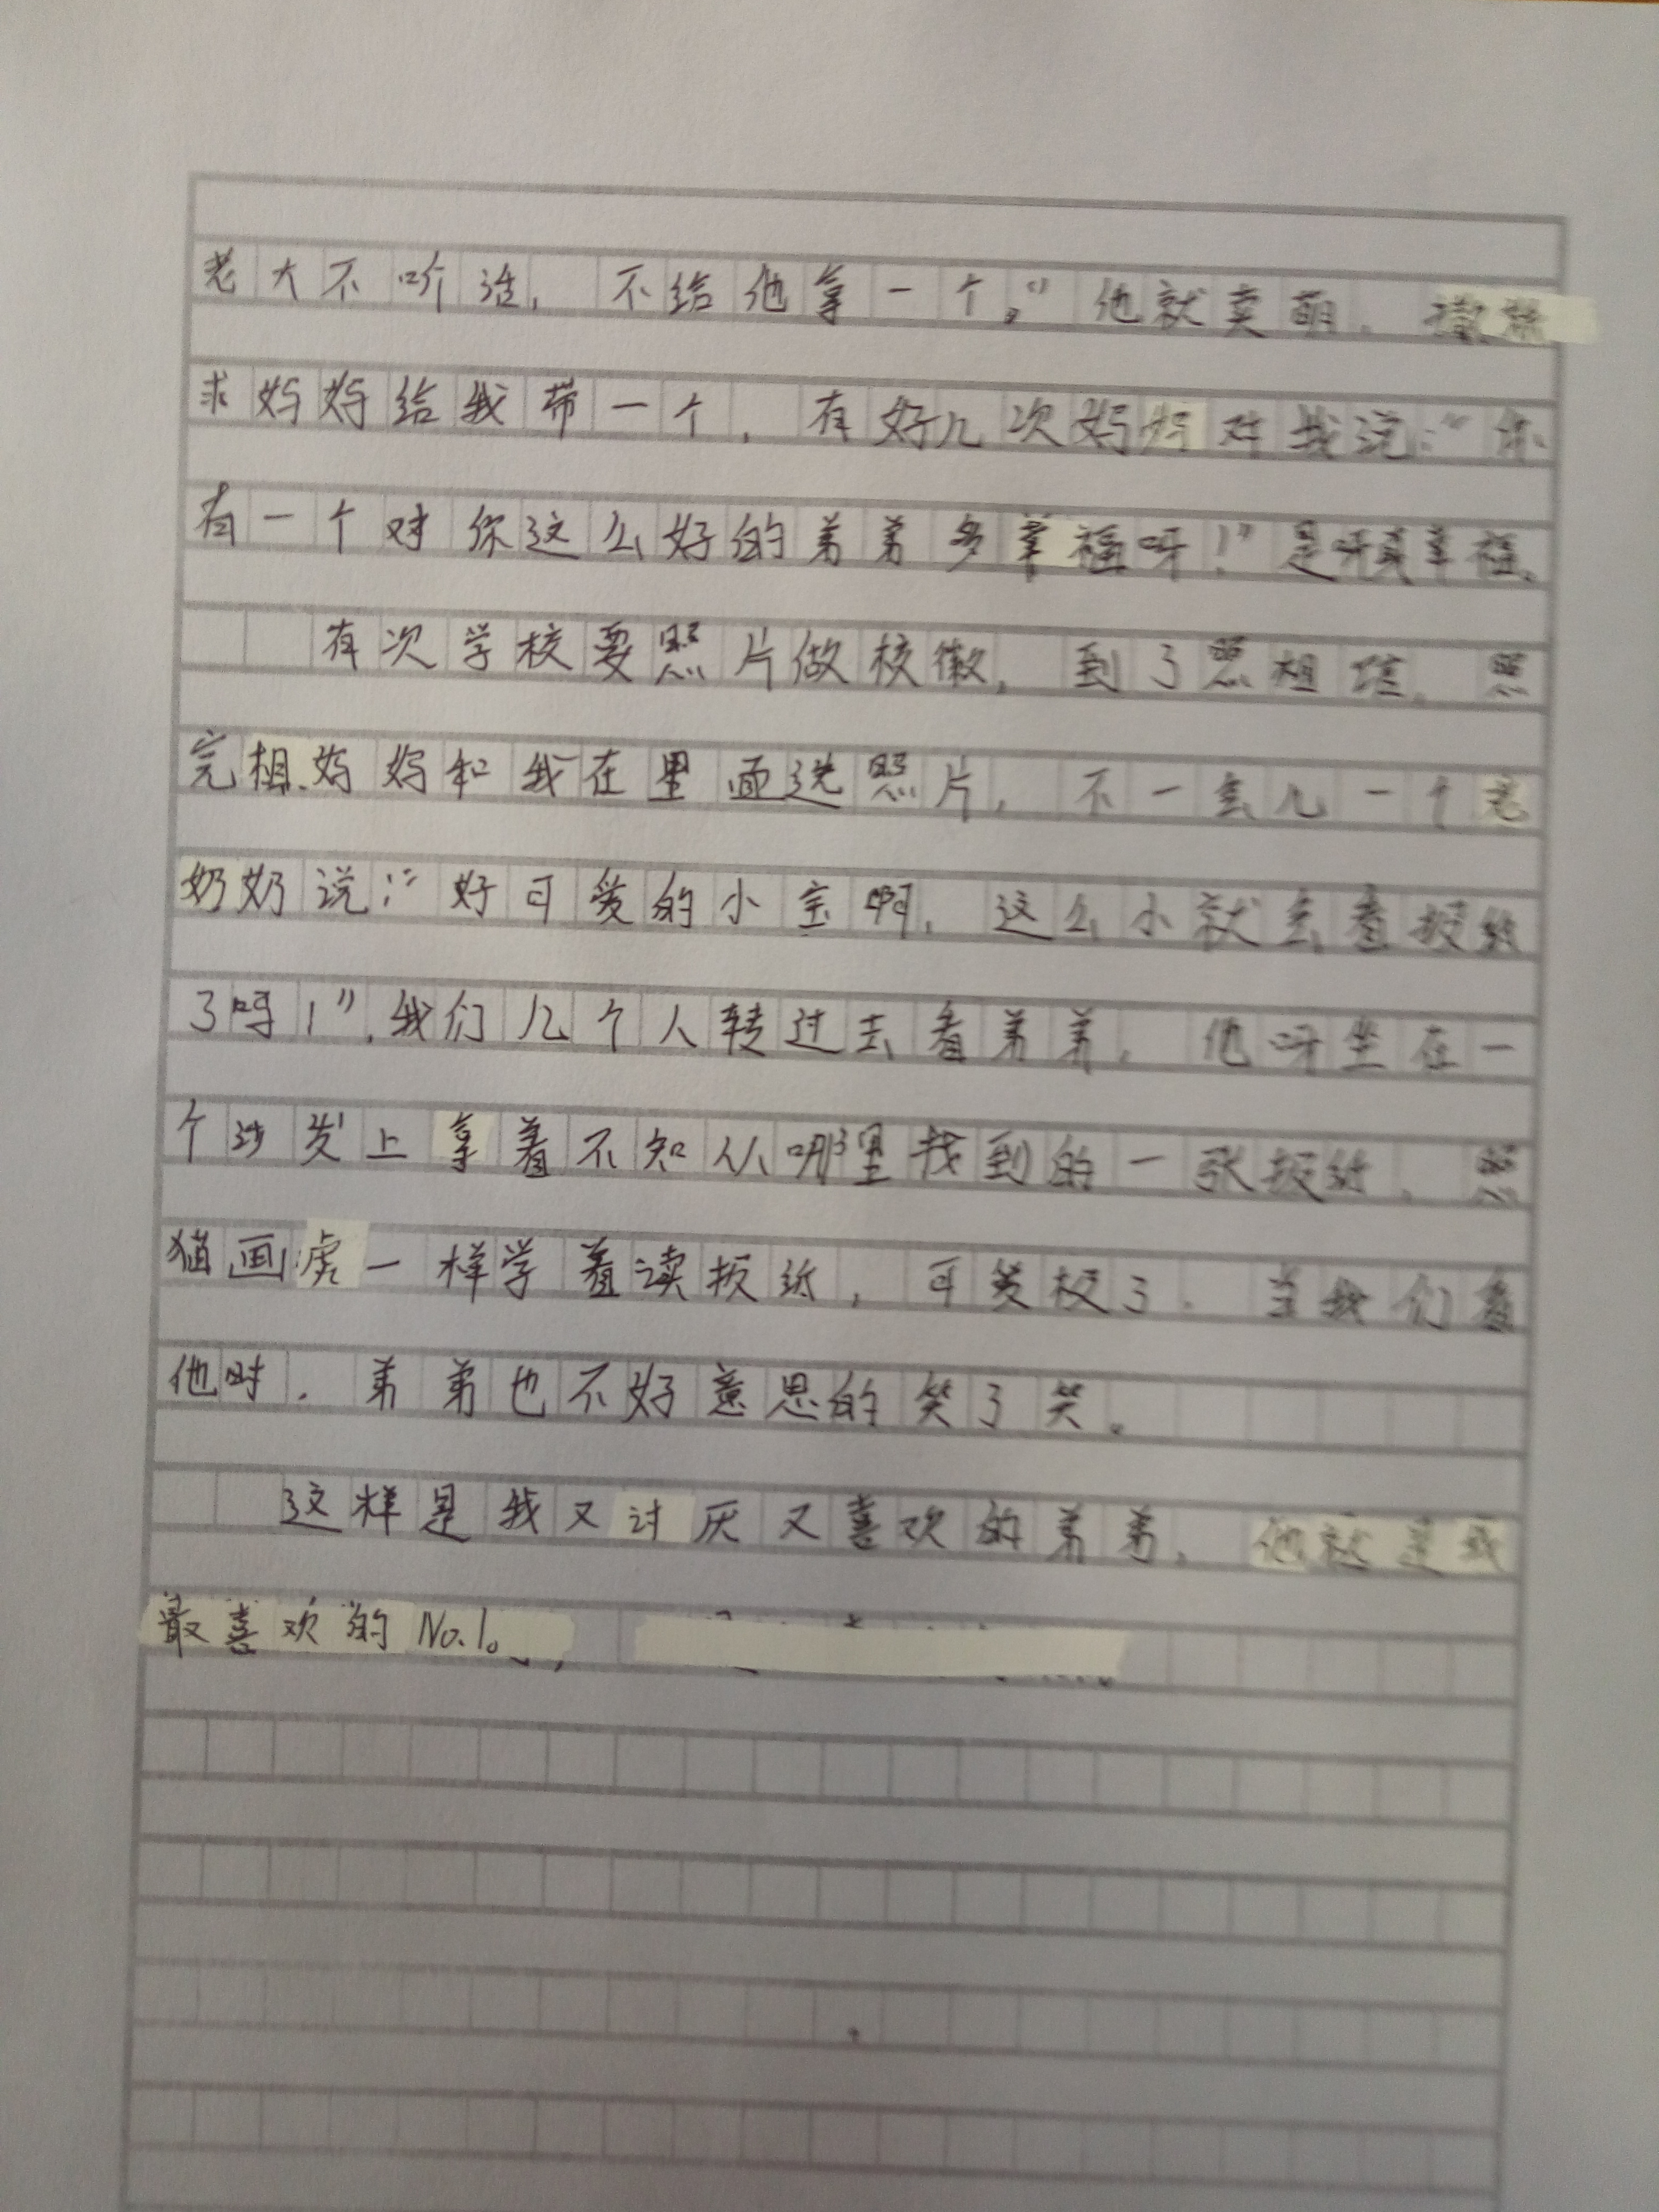 老大不听话，不给他拿一个。”他就卖萌，撒娇
求妈妈给我带一个，有好几次妈妈对我说：“你
有一个对你这么好的弟弟多幸福呀！”是呀真幸福。
有次学校要照片做校徽，到了照相馆，照
完相，妈妈和我在里面选照片，不一会儿一个老
奶奶说：“好可爱的小宝啊，这么小就会看报纸
了吗！”，我们几个人转过去看弟弟，他呀坐在一
个沙发上拿着不知从哪里找到的一张报纸，照
猫画虎一样学着读报纸，可爱极了。当我们看
他时，弟弟也不好意思的笑了笑。
这样是我又讨厌又喜欢的弟弟，他就是我
最喜欢的No.1。